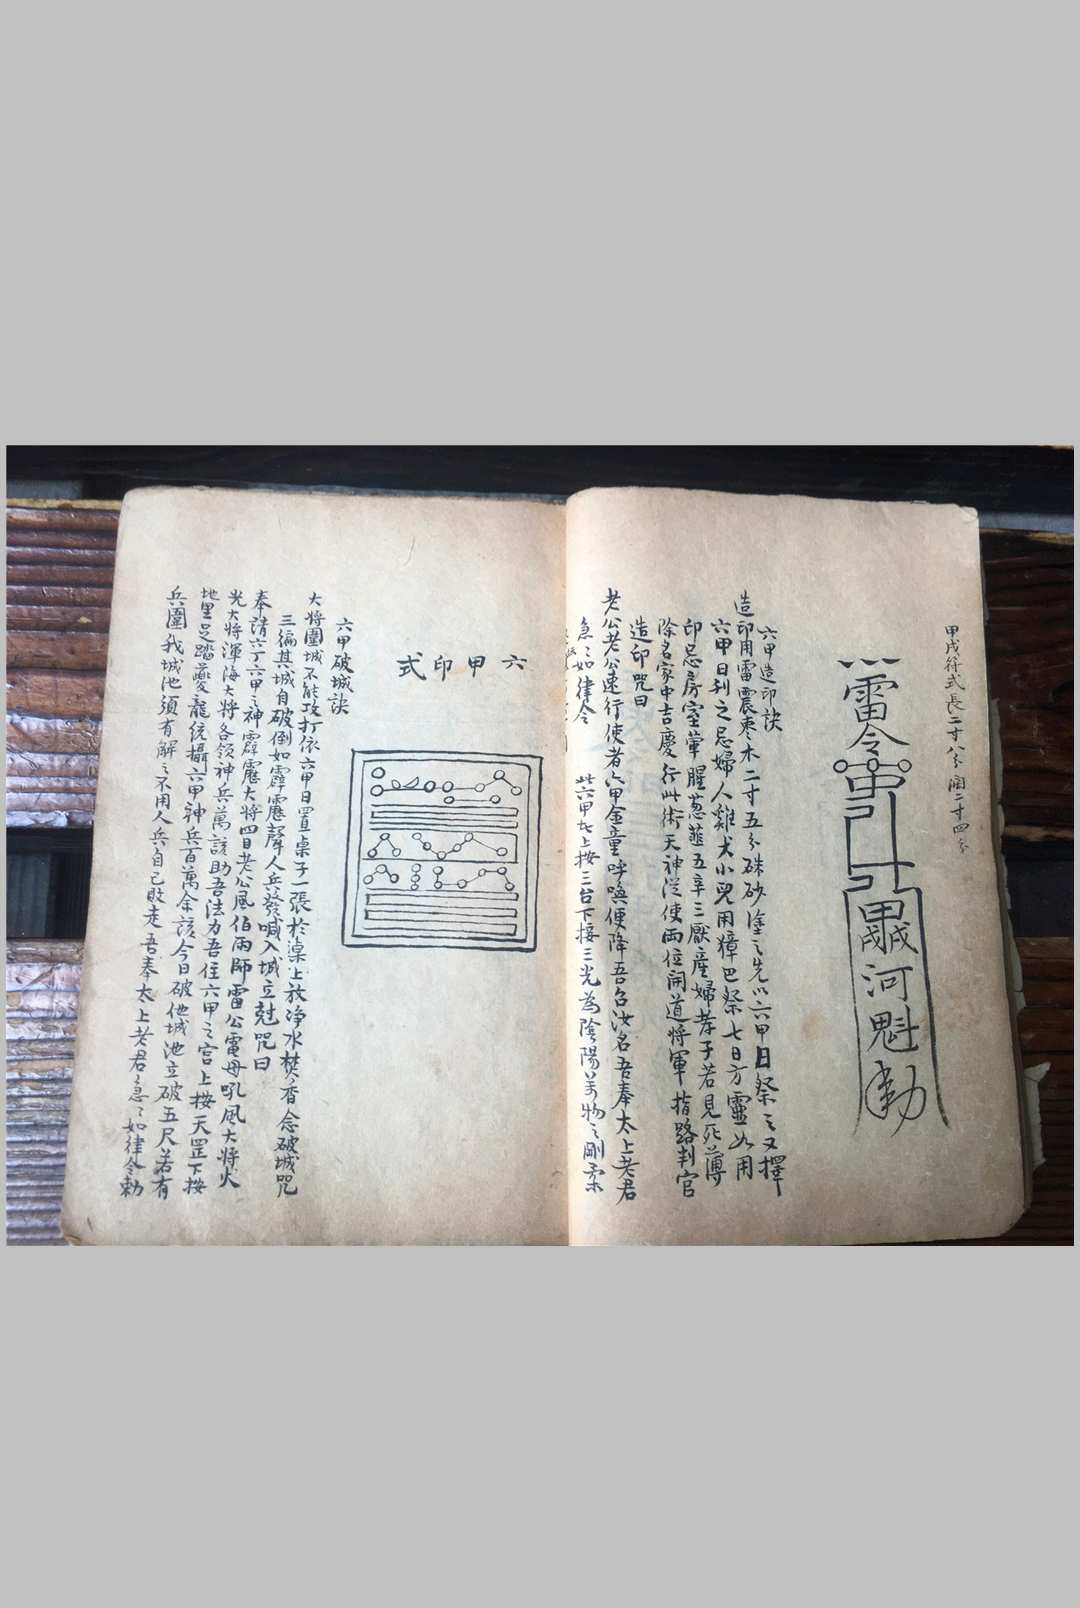 甲戌符式長二寸八分闊二寸四分
雷令
河魁
六甲造印訣
造印用雷震棗木二寸五分硃砂塗之先以六甲日祭之又擇
六甲日刋之忌婦人雞犬小兒用獐巴祭七日方靈如用
印忌房室葷腥葱薤五辛三厭産婦孝子若見死薄
除名家中吉慶行此術天神從使両位開道將軍指路判官
造印咒曰
老公老公速行使者六甲金童呼喚便降吾召汝名吾奉太上老君
急〻如律令 此六甲上按三台下接三光為陰陽萬物之剛柔
六甲印式
六甲破城訣
大將圍城不能攻打依六甲日置桌子一張於桌上放净水焚香念破城咒
三徧其城自破倒如霹靂聲人兵發喊入城立尅咒曰
奉請六丁六甲之神霹靂大將四目老公風伯雨師雷公電母吼風大將火
光大將渾海大將各領神兵萬該助吾法力吾住六甲之宫上按天罡下按
地里足踏夔龍統攝六甲神兵百萬余該今日破他城池立破五尺若有
兵圍我城池須有解之不用人兵自己敗走吾奉太上老君急〻如律令勅